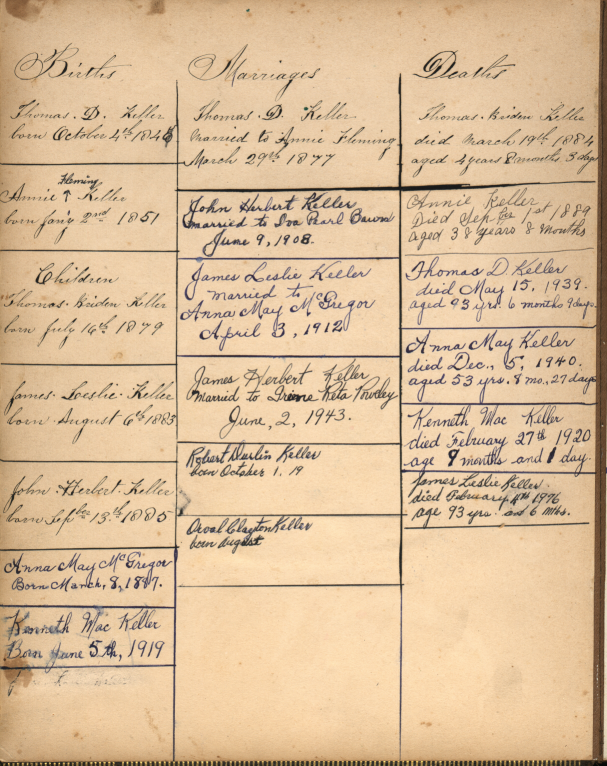 Births
Thomas. D. Keller
born October 4th 1846
Fleming
Annie ↑ Keller
born Jan'y 2nd 1851
Children
Thomas. Briden Keller
born July 16th 1879
James. Leslie. Keller
born August 6th 1883
John Herbert. Keller
born Sepber 13th 1885
Anna May McGregor
Born March, 8, 1887.
Kenneth Mac Keller
Born June 5th, 1919
Marriages
Thomas. D. Keller
married to Annie Fleming
March 29th 1877
John Herbert Keller
married to Iva Pearl Bawn
June 9, 1908.
James Leslie Keller
married to
Anna May McGregor
April 3, 1912
James Herbert Keller
married to Irene Reta
June, 2, 1943.
Robert Durlin Keller
born October 1, 19
Orval Clayton Keller
born August
Deaths
Thomas. Briden Keller
died March 19th 1884
aged 4 years 8 months 3 days
Annie Keller
Died Sepber 1st 1889
aged 38 years 8 months
Thomas D Keller
died May 15, 1939.
aged 93 yrs. 6 months 9 days.
Anna May Keller
died Dec., 5, 1940.
aged 53 yrs. 8 mo., 27 days
Kenneth Mac Keller
died February 27th 1920
age 9 months and 1 day
James Leslie Keller
died February 1976
age 93 yrs. and 6 mths.